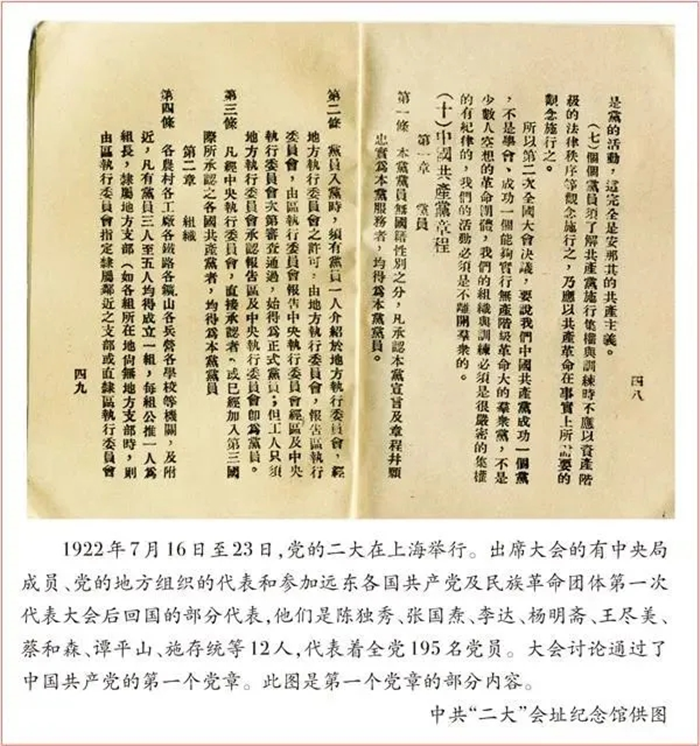 是黨的活動，這完全是安那其的共產主義。
（七）個個黨員須了解共產黨施行集權與訓練時不應以資產階
級的法律秩序等觀念施行之，乃應以共產革命在事實上所需要的
觀念施行之。
所以第二次全國大會決議，要說我們中國共產黨成功一個黨
，不是學會、成功一個能夠實行無產階級革命大的羣衆黨，不是
少數人空想的革命團體，我們的組織與訓練必須是很嚴密的集權
的有紀律的，我們的活動必須是不離開羣衆的。
（十）中國共產黨章程
第一章　黨員
第一條　本黨黨員無國籍性別之分，凡承認本黨宣言及章程幷願
忠實爲本黨服務者，均得爲本黨黨員。
四八
第二條　黨員入黨時，須有黨員一人介紹於地方執行委員會，經
地方執行委員會之許可，由地方執行委員會，報告區執行
委員會，由區執行委員會報告中央執行委員會經區及中央
執行委員會次第審查通過，始得爲正式黨員；但工人只須
地方執行委員會承認報告區及中央執行委員會卽爲黨員。
第三條　凡經中央執行委員會，直接承認者，或已經加入第三國
際所承認之各國共產黨者，均得爲本黨黨員
第二章　組織
第四條　各農村各工廠各鐵路各鑛山各兵營各學校等機關，及附
近，凡有黨員三人至五人均得成立一組，每組公推一人爲
組長，隸屬地方支部（如各組所在地尚無地方支部時，則
由區執行委員會指定隸屬鄰近之支部或直隸區執行委員會
四九
1922年7月16日至23日,党的二大在上海举行。出席大会的有中央局
成员、党的地方组织的代表和参加远东各国共产党及民族革命团体第一次
代表大会后回国的部分代表,他们是陈独秀、张国焘、李达、杨明斋、王尽美、
蔡和森、谭平山、施存统等12人,代表着全党195名党员。大会讨论通过了
中国共产党的第一个党章。此图是第一个党章的部分内容。
中共“二大”会址纪念馆供图